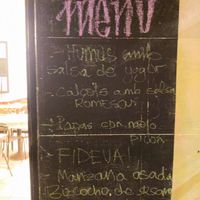 menú
- Humus amb
salsa de yogur
- Calçots amb salsa
Romescu!
- Papas con mojo
picon
- FIDEUA!
- Manzana asada
Bizcocho de